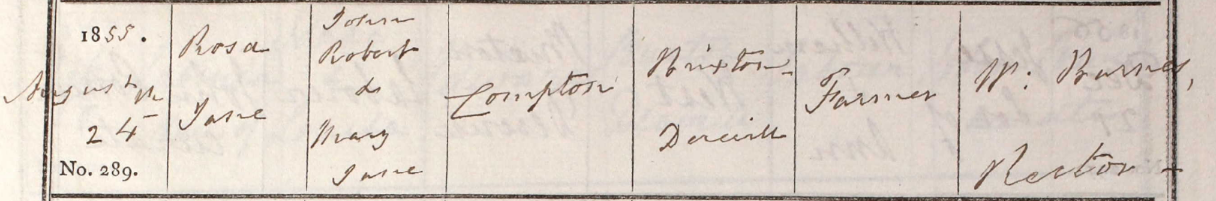 1855.
August
24th
No. 289.
Rosa
Jane
John
Robert
&
Mary
Jane
Compton
Brixton
Deverill
Farmer
W: Barnes,
Rector